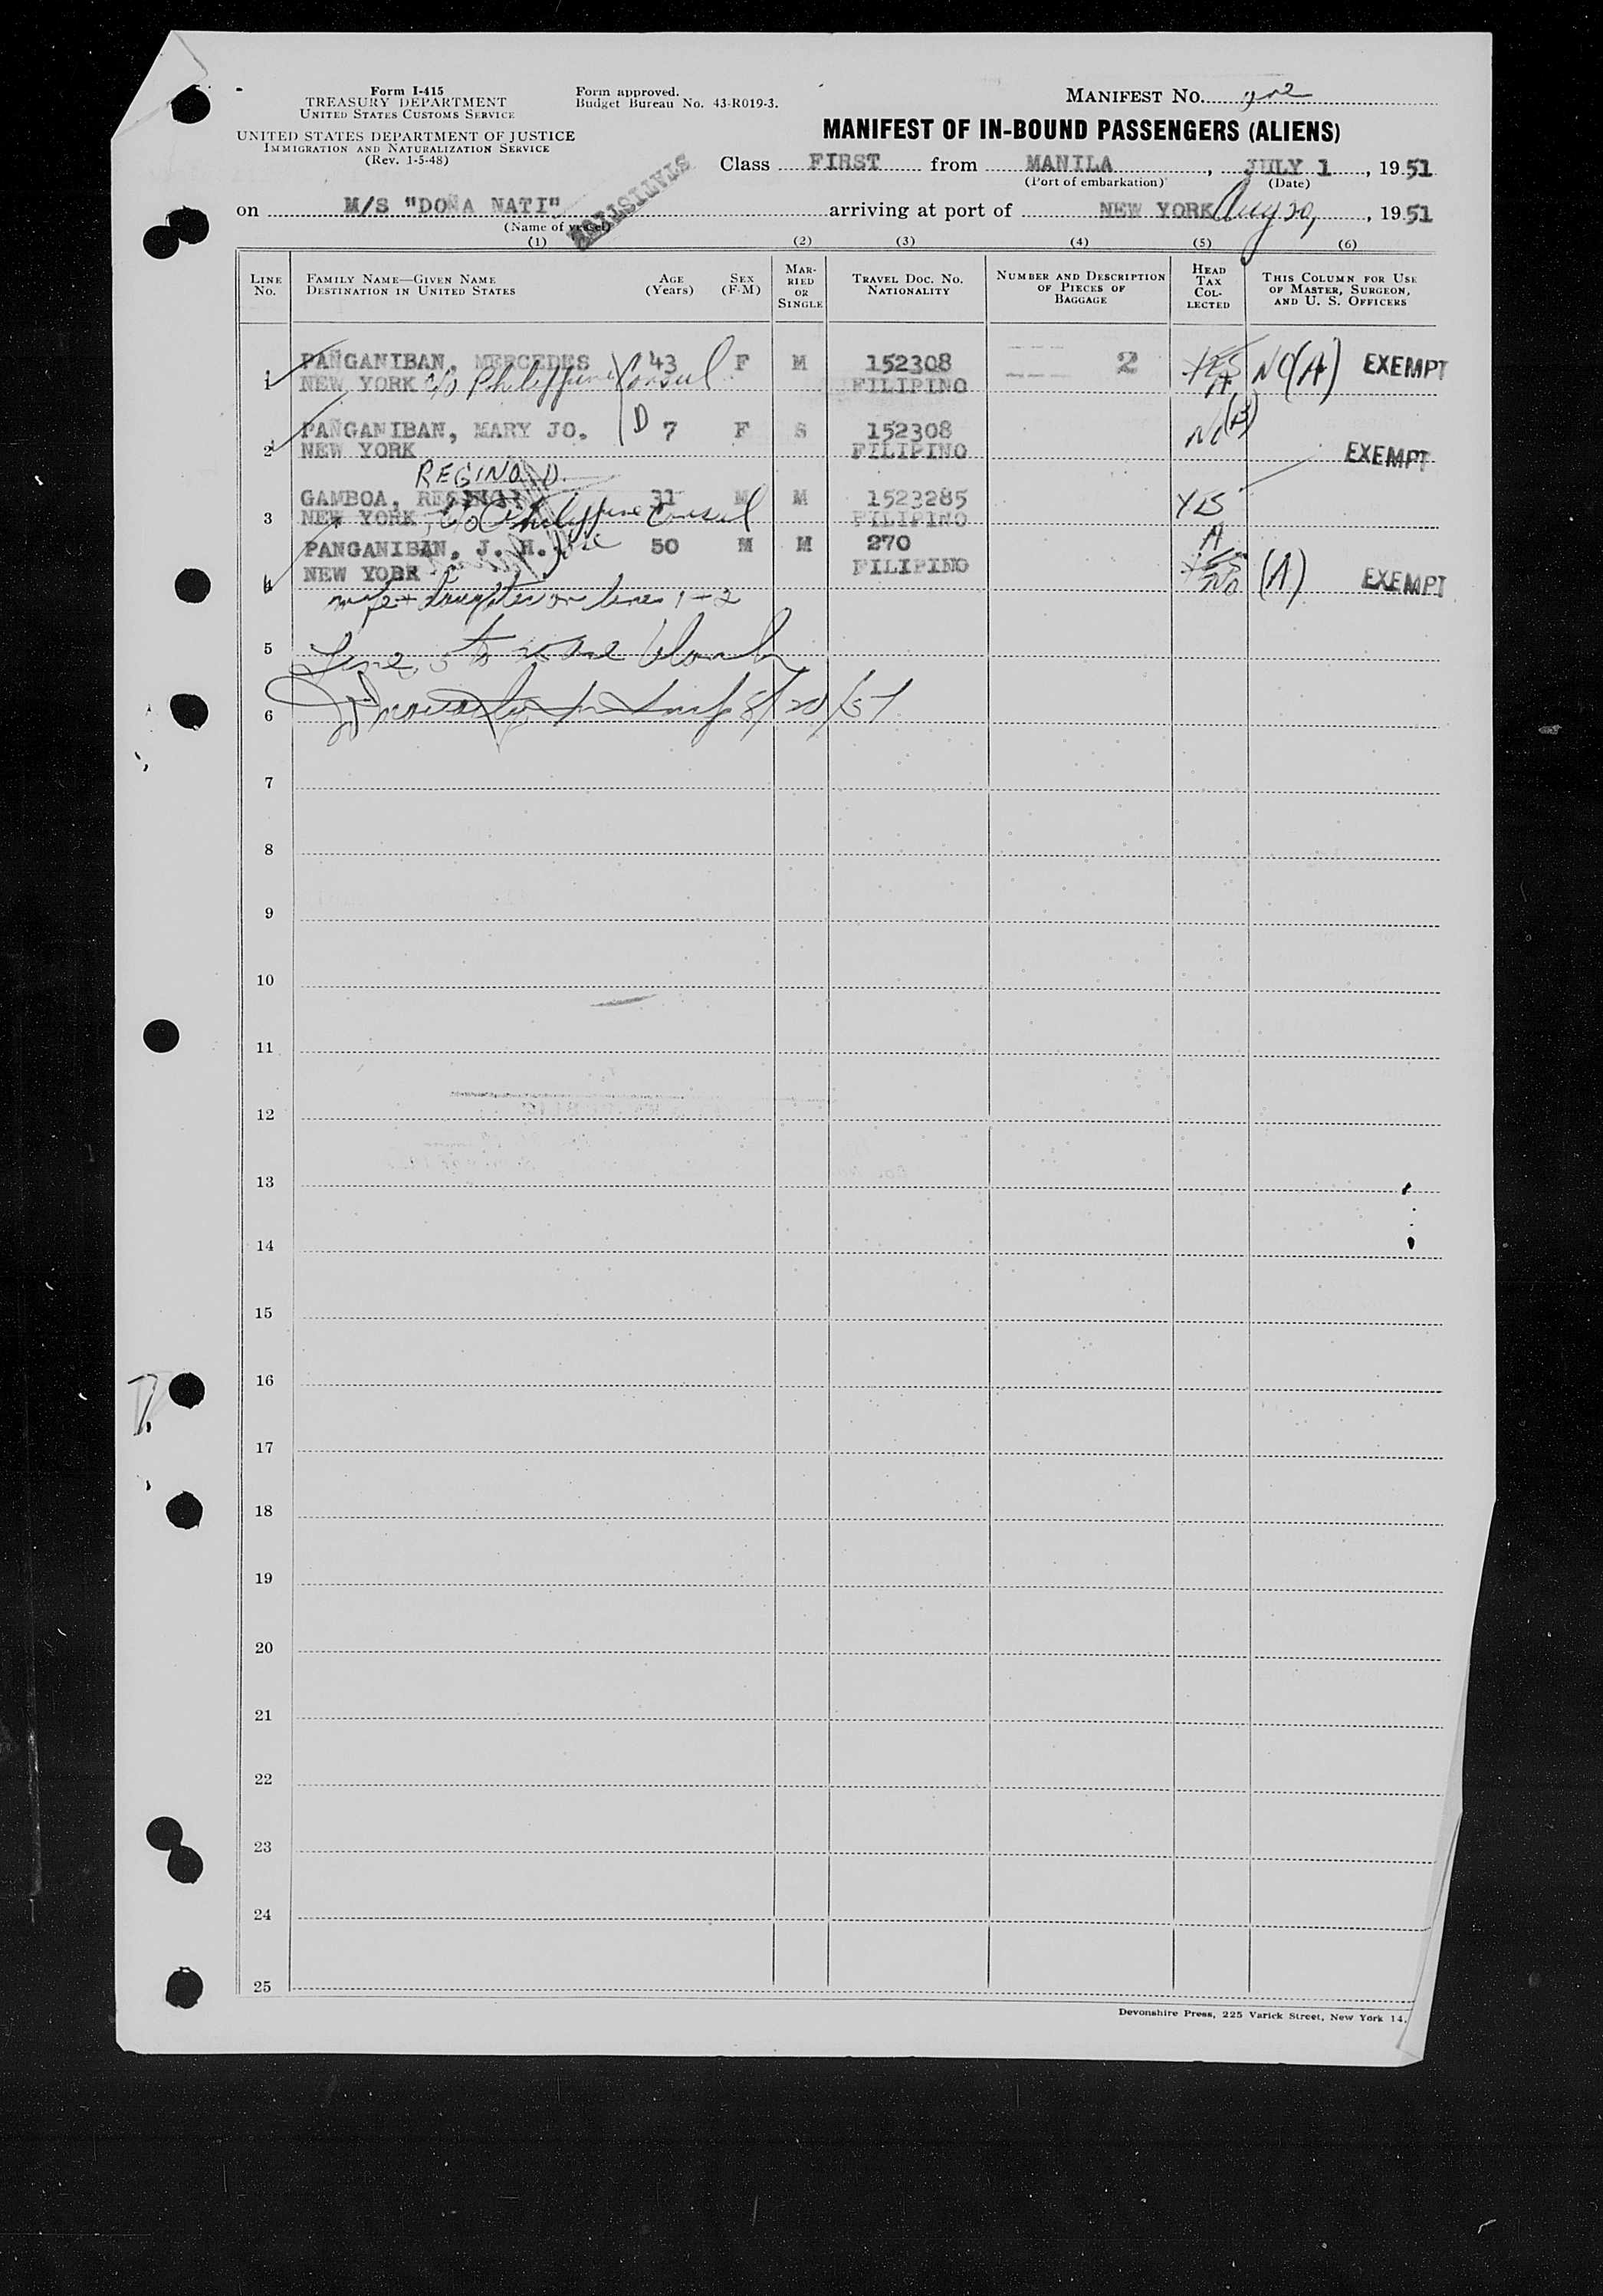 Form I-415
TREASURY DEPARTMENT
UNITED STATES CUSTOMS SERVICE
UNITED STATES DEPARTMENT OF JUSTICE
IMMIGRATION AND NATURALIZATION SERVICE
(Rev. 1-5-48)
Form approved.
Budget Bureau No. 43-R019-3.
MANIFEST NO.
MANIFEST OF IN-BOUND PASSENGERS (ALIENS)
Class FIRST from MANILA, JULY 1, 1951
(Port of embarkation) (Date)
STATISTICS
on M/S "DOÑA NATI" arriving at port of NEW YORK Aug 20, 1951
(Name of vessel)
(1) (2) (3) (4) (5) (6)
LINE NO.
FAMILY NAME—GIVEN NAME
DESTINATION IN UNITED STATES
AGE (Years)
SEX (F-M)
MARRIED OR SINGLE
TRAVEL DOC. NO.
NATIONALITY
NUMBER AND DESCRIPTION OF PIECES OF BAGGAGE
HEAD TAX COLLECTED
THIS COLUMN FOR USE OF MASTER, SURGEON, AND U. S. OFFICERS
PAÑGANIBAN, MERCEDES 43 F M 152308 2 YES NO(A) EXEMPT
1 NEW YORK c/o Philippine Consul FILIPINO A
PAÑGANIBAN, MARY JO. D 7 F S 152308 No (A)
2 NEW YORK FILIPINO EXEMPT
REGINO D.
GAMBOA, 31 M M 1523285 YES
3 NEW YORK, c/o Philippine Consul FILIPINO
PANGANIBAN, J. H. Jose 50 M M 270 A
4 NEW YORK FILIPINO YES No (A) EXEMPT
wife + daughter on lines 1-2
5 Line 5 to blank
6 8/20/51
7
8
9
10
11
12
13
14
15
16
17
18
19
20
21
22
23
24
25
Devonshire Press, 225 Varick Street, New York 14.